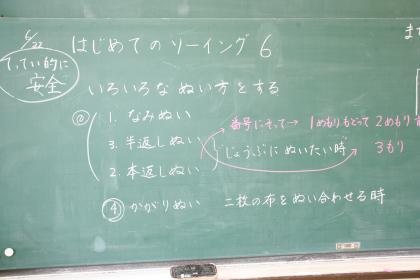 6/22
はじめてのソーイング 6
てってい的に
安全
いろいろな ぬい方をする
1. なみぬい
番号にそって→ 1めもりもどって 2めもりす
3. 半返しぬい
じょうぶに ぬいたい時
3もり
2. 本返しぬい
④ かがりぬい 二枚の布をぬい合わせる時